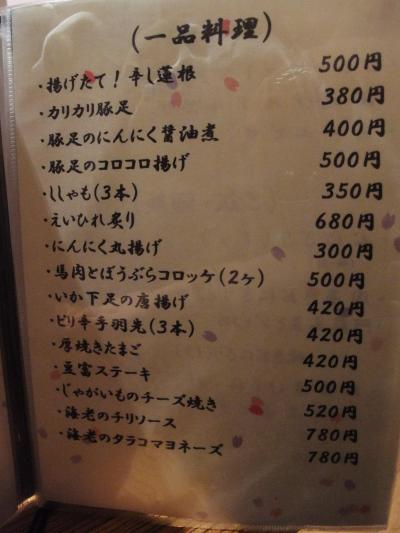 (一品料理)
・揚げたて！辛し蓮根 500円
・カリカリ豚足 380円
・豚足のにんにく醤油煮 400円
・豚足のコロコロ揚げ 500円
・ししゃも(3本) 350円
・えいひれ炙り 680円
・にんにく丸揚げ 300円
・馬肉とぼうぶらコロッケ(2ヶ) 500円
・いか下足の唐揚げ 420円
・ピリ辛手羽先(3本) 420円
・厚焼きたまご 420円
・豆富ステーキ 500円
・じゃがいものチーズ焼き 520円
・海老のチリソース 780円
・海老のタラコマヨネーズ 780円